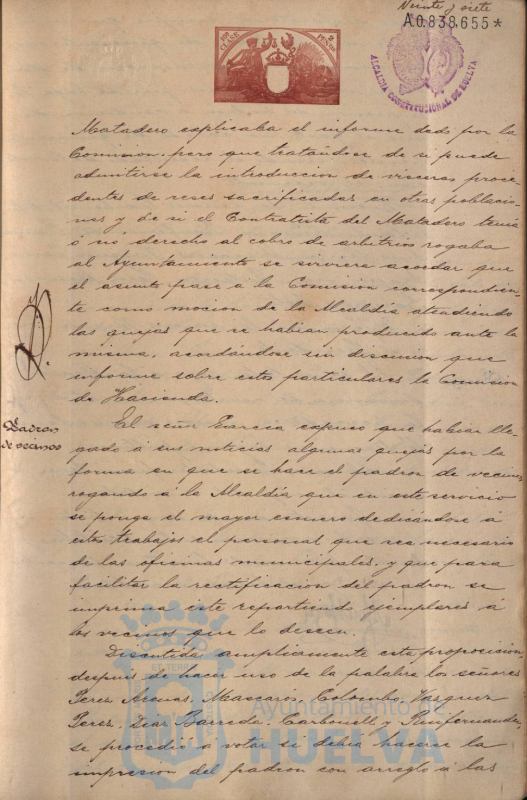 Veinte y siete
A.0.838.655*
11ª CLASE
2 PESETAS
ALCALDIA CONSTITUCIONAL DE HUELVA
Matadero explicaba el informe dado por la
Comision, pero que tratándose de si puede
admitirse la introduccion de visceras proce-
dentes de reses sacrificadas en otras poblacio-
nes y de si el Contratista del Matadero tenia
ó nó derecho al cobro de arbitrios rogaba
al Ayuntamiento se sirviera acordar que
el asunto pase á la Comision correspondien-
te como mocion de la Alcaldia atendiendo
las quejas que se habian producido ante la
misma, acordándose sin discusion que
informe sobre estos particulares la Comision
de Hacienda.
Padron
de vecinos
El señor Garcia expuso que habian lle-
gado á sus noticias algunas quejas por la
forma en que se hace el padron de vecinos
rogando á la Alcaldía que en este servicio
se ponga el mayor esmero dedicándose á
estos trabajos el personal que sea necesario
de las oficinas municipales, y que para
facilitar la rectificacion del padron se
imprima este repartiendo ejemplares á
los vecinos que lo deseen.
Discutida ampliamente esta proposicion
despues de hacer uso de la palabra los señores
Perez Arenas, Mascarós, Colombo, Vazquez
Perez, Diaz Barreda, Carbonell y Ruifernandez,
se procedió á votar si debia hacerse la
impresion del padron con arreglo á las
Ayuntamiento de
HUELVA